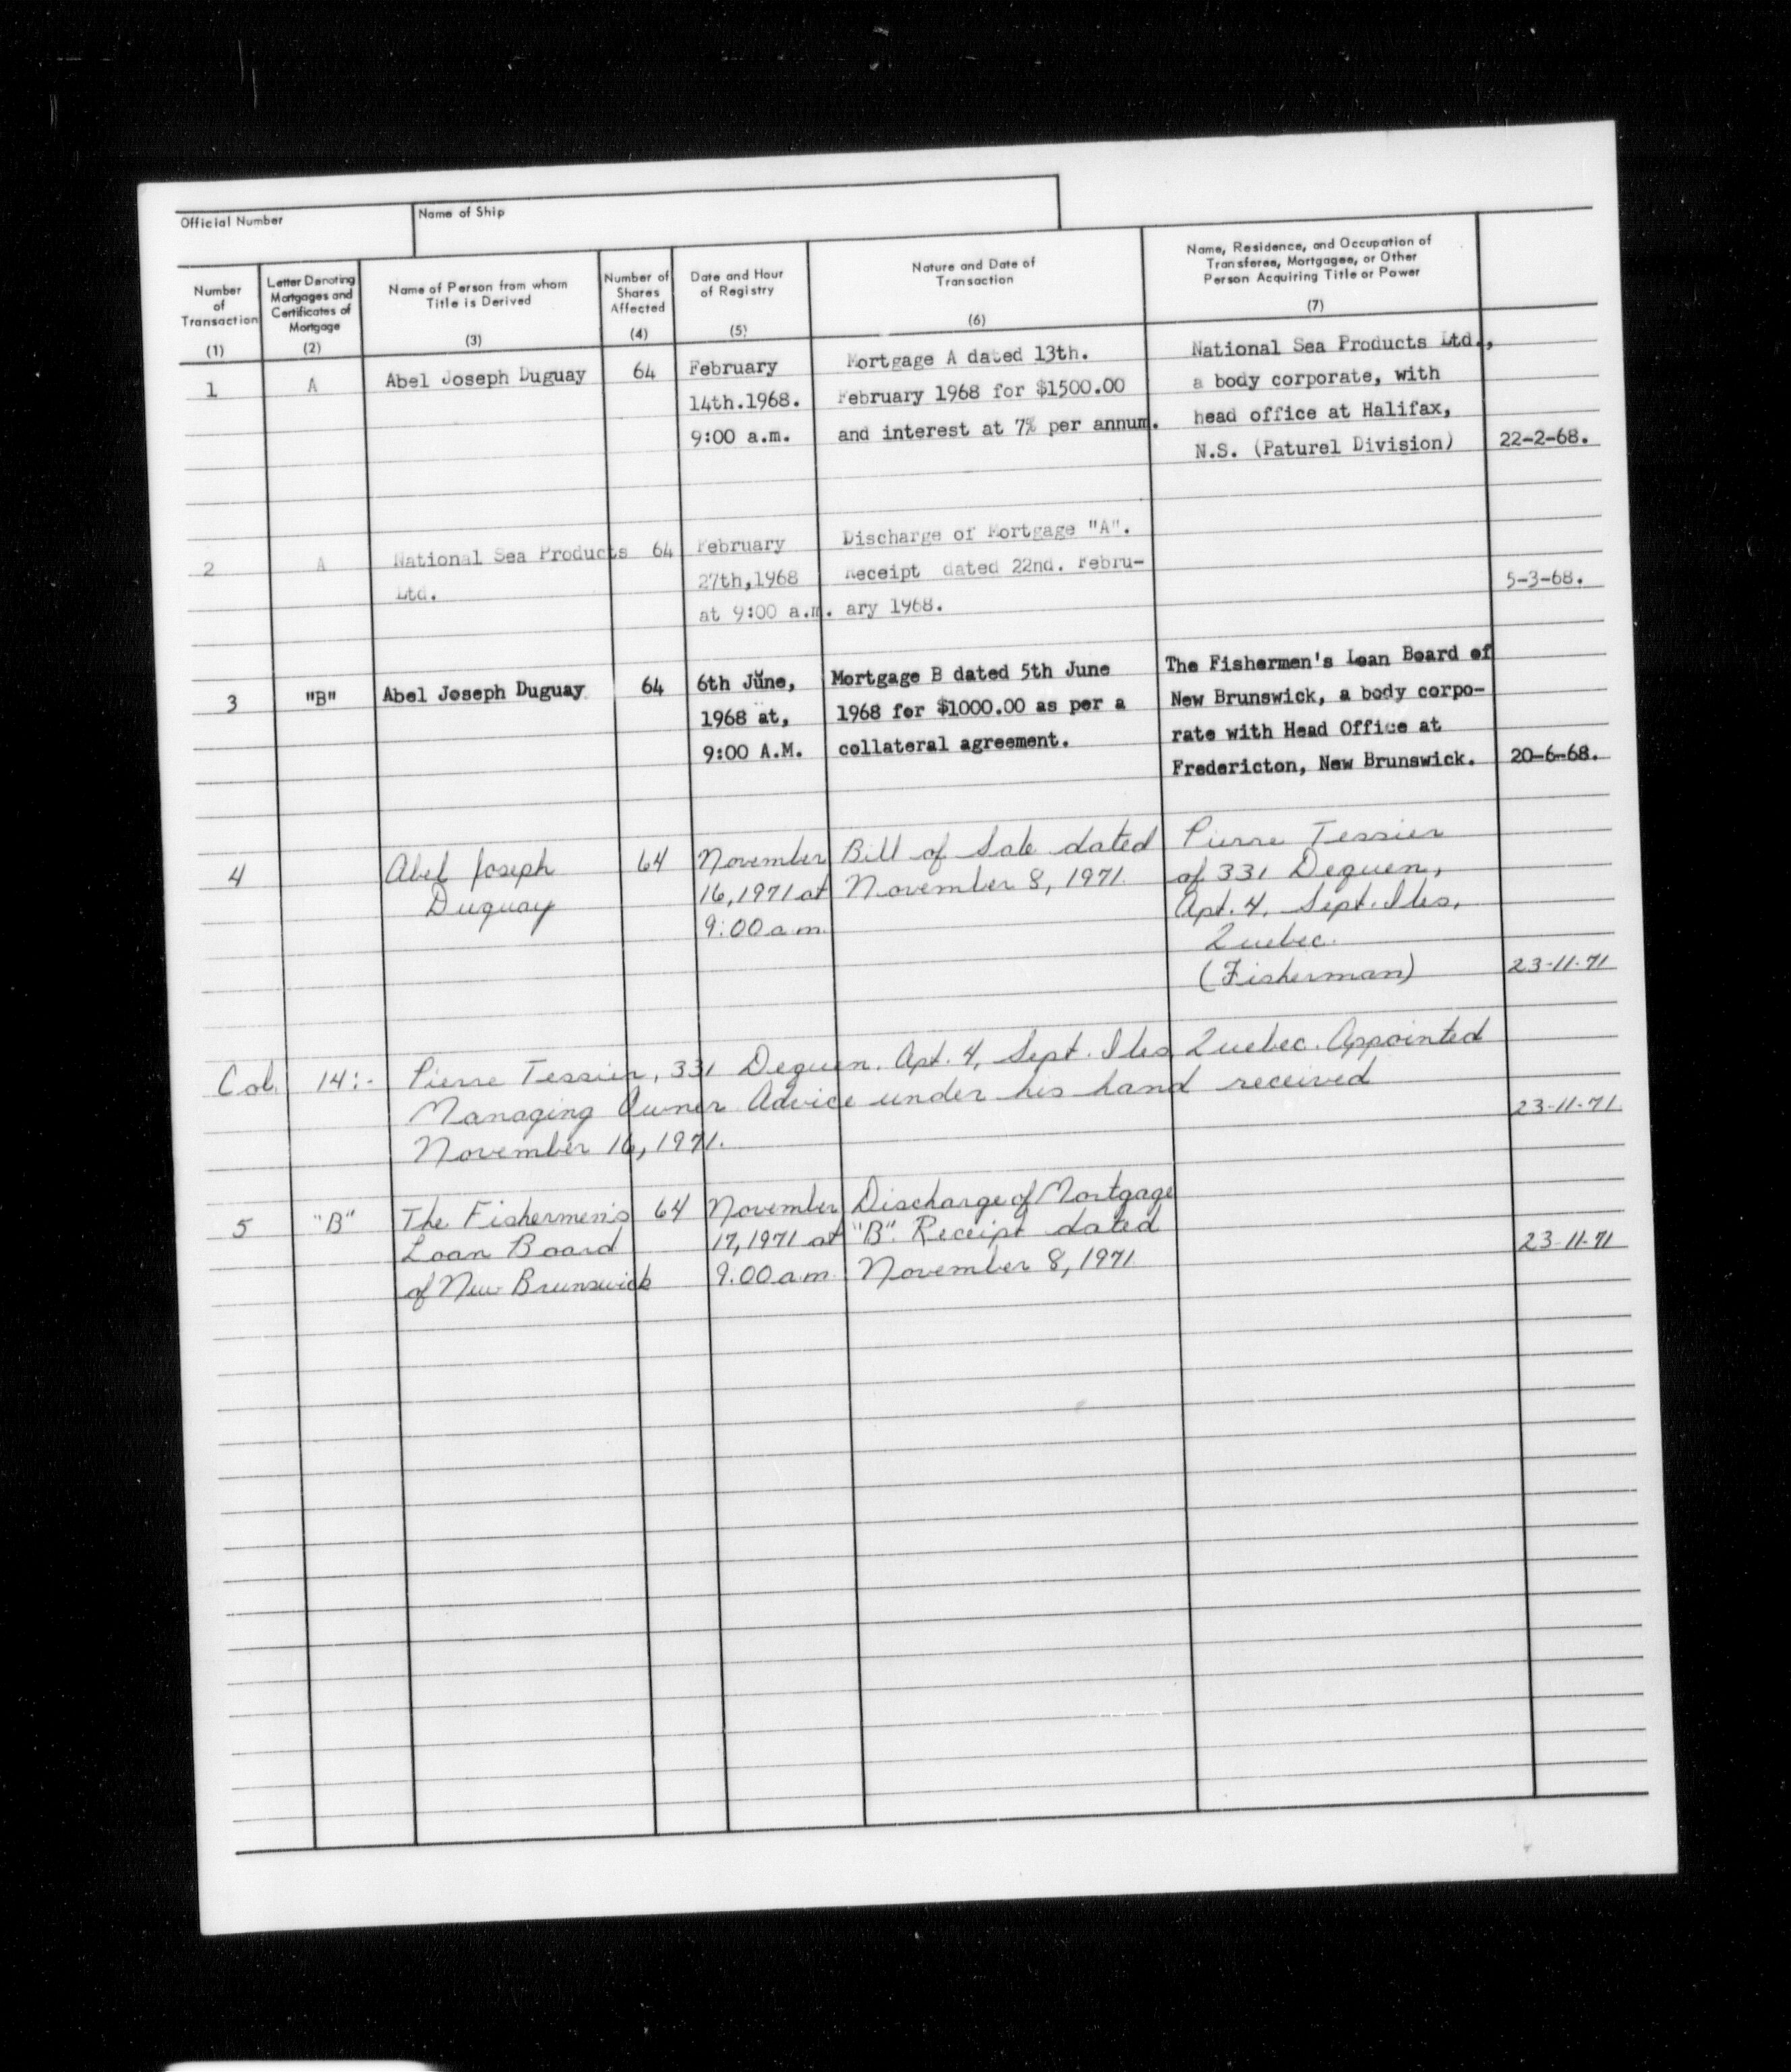 Official Number
Name of Ship
Number of Transaction (1)
Letter Denoting Mortgages and Certificates of Mortgage (2)
Name of Person from whom Title is Derived (3)
Number of Shares Affected (4)
Date and Hour of Registry (5)
Nature and Date of Transaction (6)
Name, Residence, and Occupation of Transferee, Mortgagee, or Other Person Acquiring Title or Power (7)
1 A Abel Joseph Duguay 64 February Mortgage A dated 13th. National Sea Products Ltd.,
14th.1968. February 1968 for $1500.00 a body corporate, with
9:00 a.m. and interest at 7% per annum. head office at Halifax,
N.S. (Paturel Division) 22-2-68.
2 A National Sea Products 64 February Discharge of Mortgage "A".
Ltd. 27th,1968 Receipt dated 22nd. Febru-
at 9:00 a.m. ary 1968. 5-3-68.
3 "B" Abel Joseph Duguay 64 6th June, Mortgage B dated 5th June The Fishermen's Loan Board of
1968 at, 1968 for $1000.00 as per a New Brunswick, a body corpo-
9:00 A.M. collateral agreement. rate with Head Office at
Fredericton, New Brunswick. 20-6-68.
4 Abel Joseph 64 November Bill of Sale dated Pierre Tessier
Duguay 16, 1971 at November 8, 1971. of 331 Dequen,
9:00 a.m. Apt. 4, Sept. Iles,
Quebec.
(Fisherman) 23-11-71
Col. 14:- Pierre Tessier, 331 Dequen. Apt. 4, Sept. Iles Quebec. Appointed
Managing Owner Advice under his hand received
November 16, 1971. 23-11-71.
5 "B" The Fishermen's 64 November Discharge of Mortgage
Loan Board 17, 1971 at "B". Receipt dated
of New Brunswick 9.00 a.m. November 8, 1971. 23-11-71